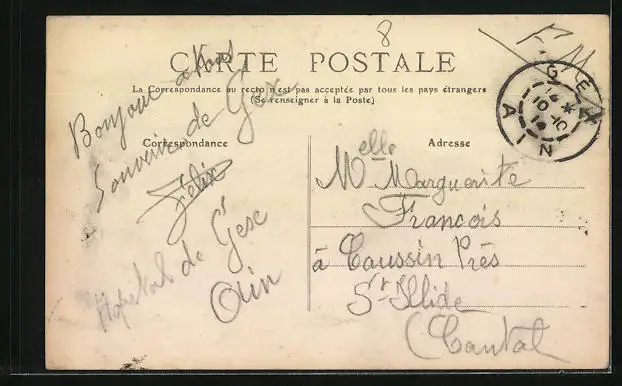 CARTE POSTALE
8
F. M.
La Correspondance au recto n'est pas acceptée par tous les pays étrangers
(Se renseigner à la Poste)
GEX
AIN
14 *
10 - 10
14
Correspondance
Bonjour à tous
Souvenir de Gex
Félix
Hopital de Gesc
Oin
Adresse
Melle Marguerite
Francois
à Caussin Près
St Illide
(Cantal